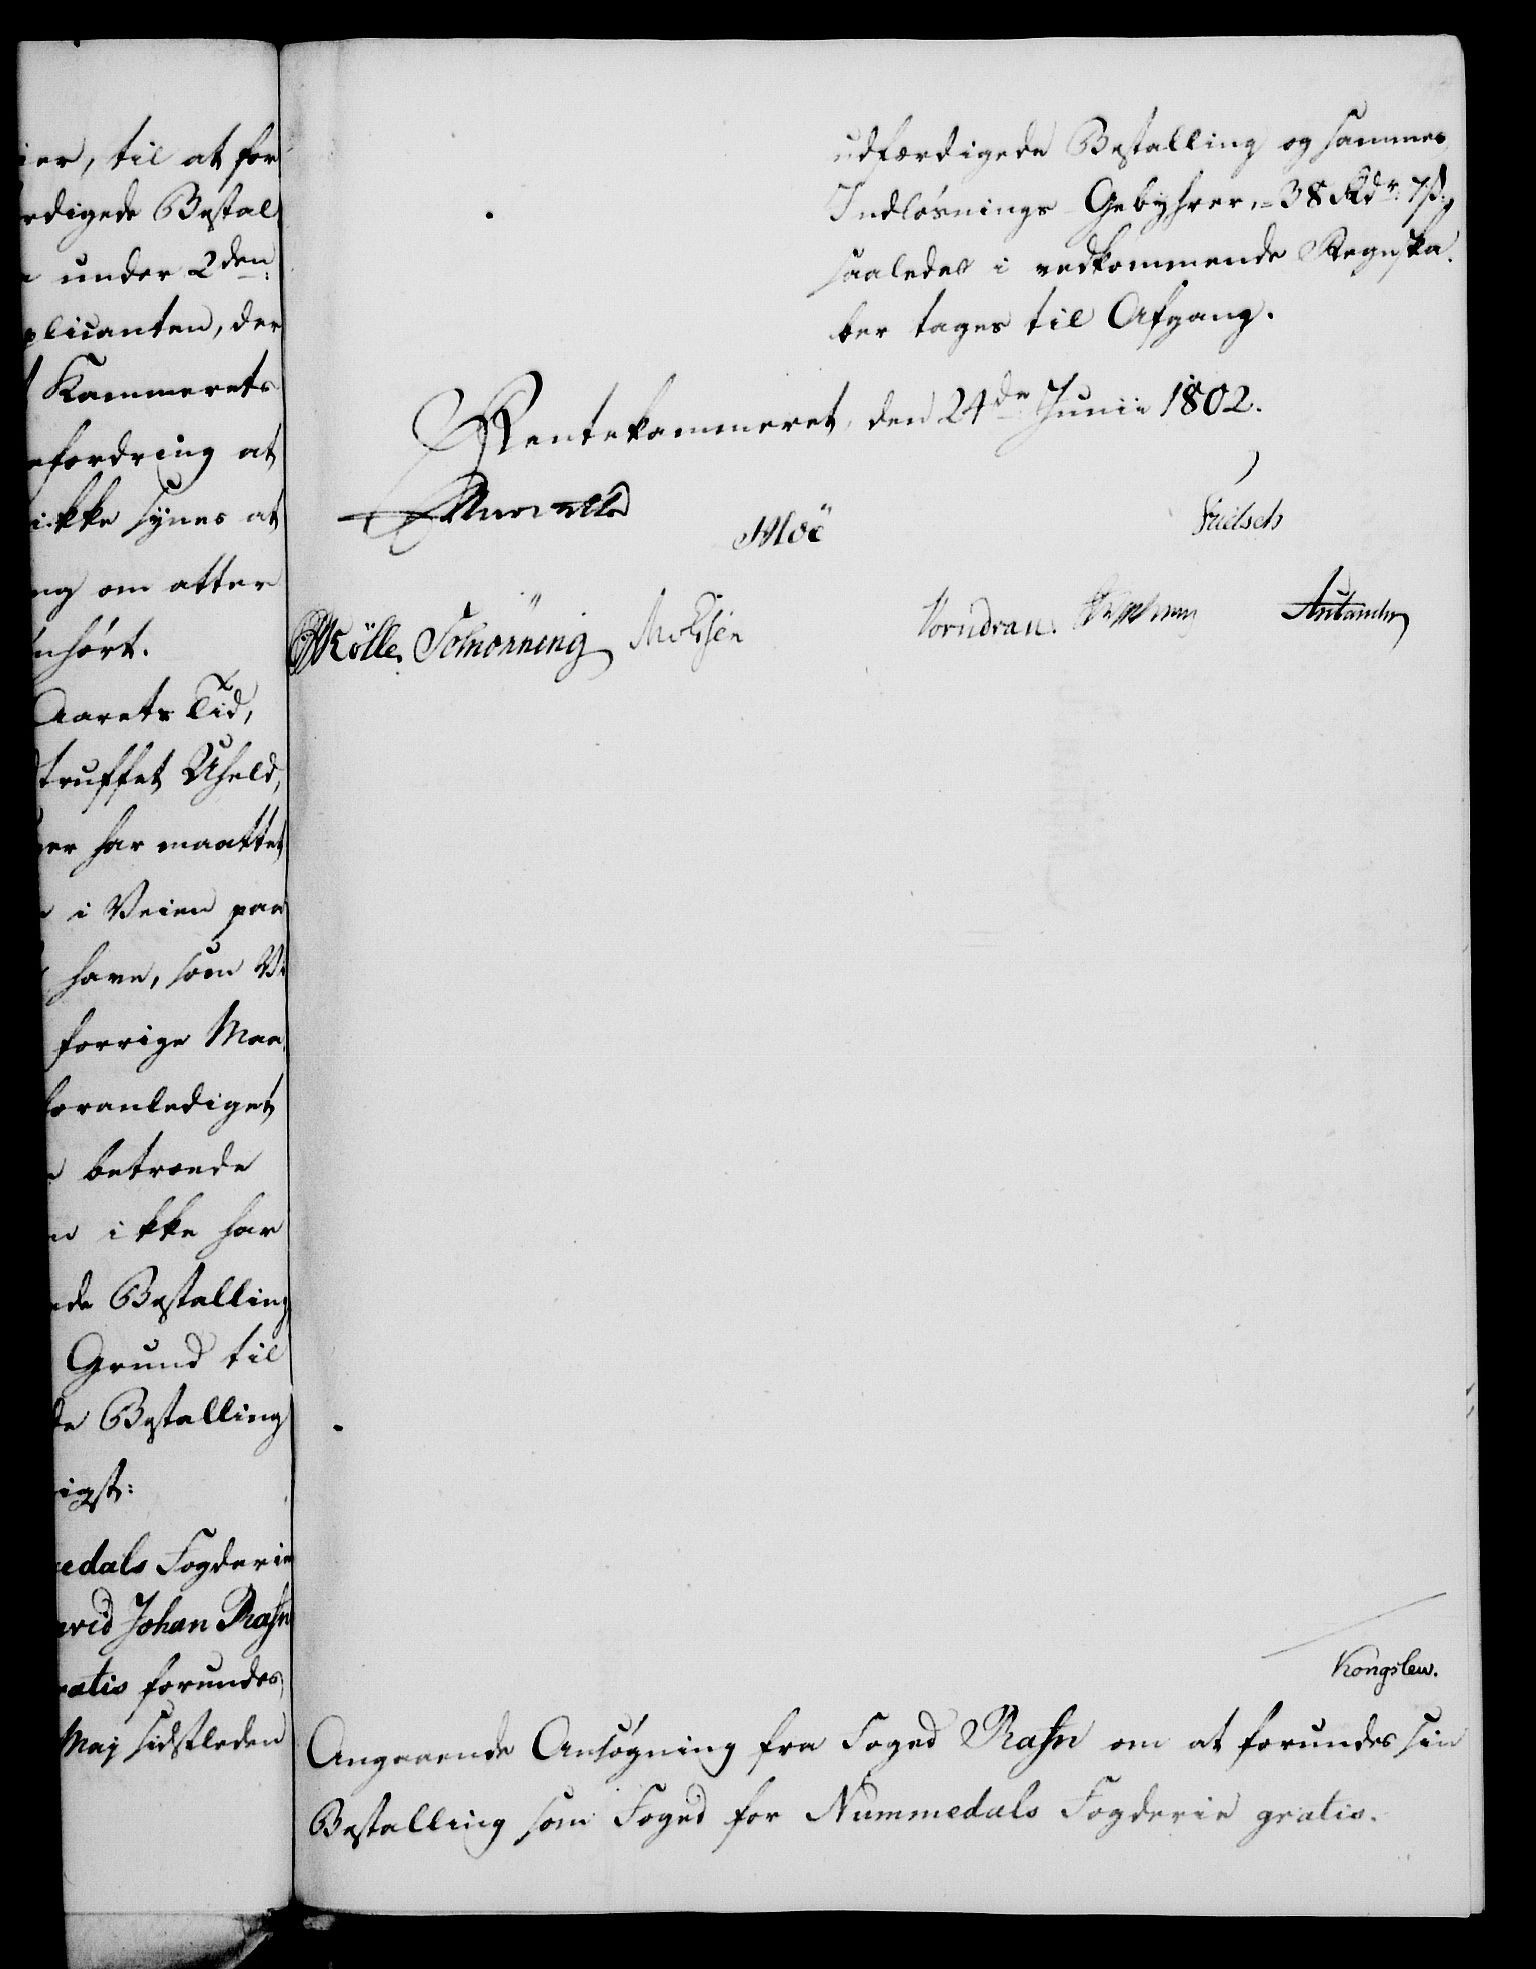 ier, til at for
rdigede Bestal
under 2den
plicanten, der
Kammerets
efordring at
ikke synes at
ng om atter
nhört.
Aarets Tid,
truffet Uheld,
er har maattet
i Veien paa
have, som Vi
forrige Maa
foranlediget
betroede
n ikke har
de Bestalling
Grund til
de Bestalling
igst:
edals Fogderie
avid Johan Rahn
ratis forundes,
Maj sidstleden
udfærdigede Bestalling og sammes
Indlösnings Gebyhrer, 38 Rdr. 7 ß,
saaledes i vedkommende Regnska
ber tages til Afgang.
Rentekammeret, den 24de Junii 1802.
Moë
Mölle. Schönning
Vorndran.
Kongslew.
Angaaende Ansögning fra Foged Rahn om at forundes sin
Bestalling som Foged for Nummedals Fogderie gratis.